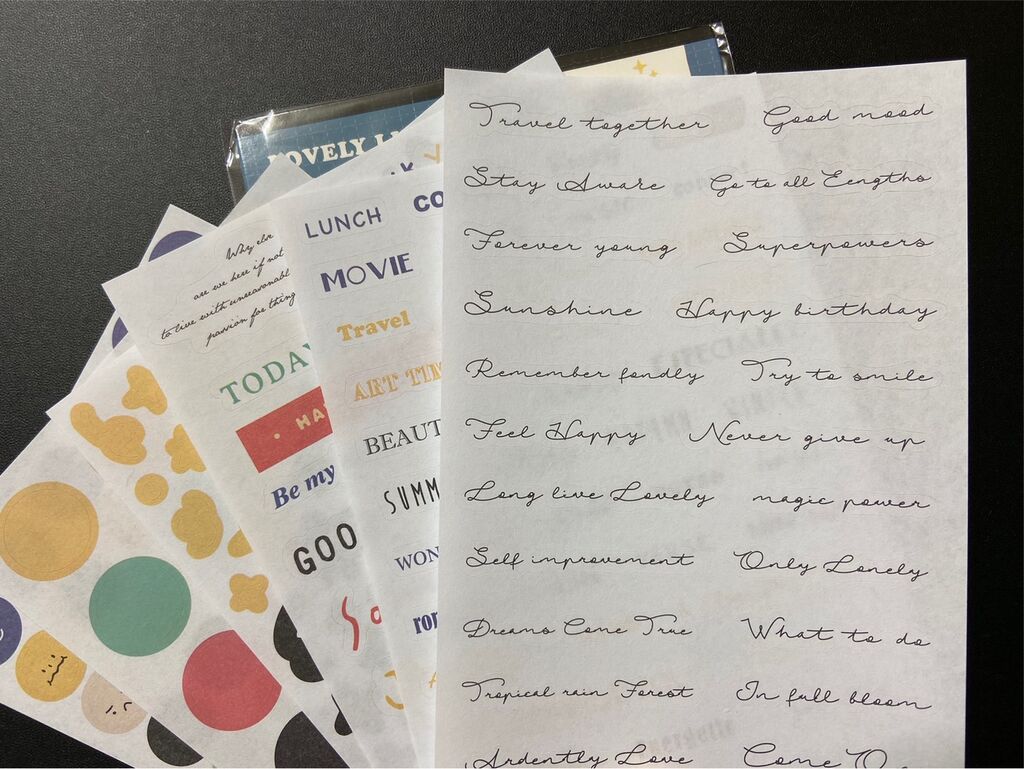 LOVELY
Travel together
Good mood
Stay Aware
Go to all Eengths
Forever young
Superpowers
Sunshine
Happy birthday
Remember fondly
Try to smile
Feel Happy
Never give up
Long live Lovely
magic power
Self improvement
Only Lonely
Dreams Come True
What to do
Tropical rain Forest
In full bloom
Ardently Love
Come
LUNCH
CO
MOVIE
Travel
ART TIM
BEAUT
SUMM
WON
ror
Why else
are we here if not
to live with unreasonabl
passion for thing
TODAY
HA
Be my
GOO
So